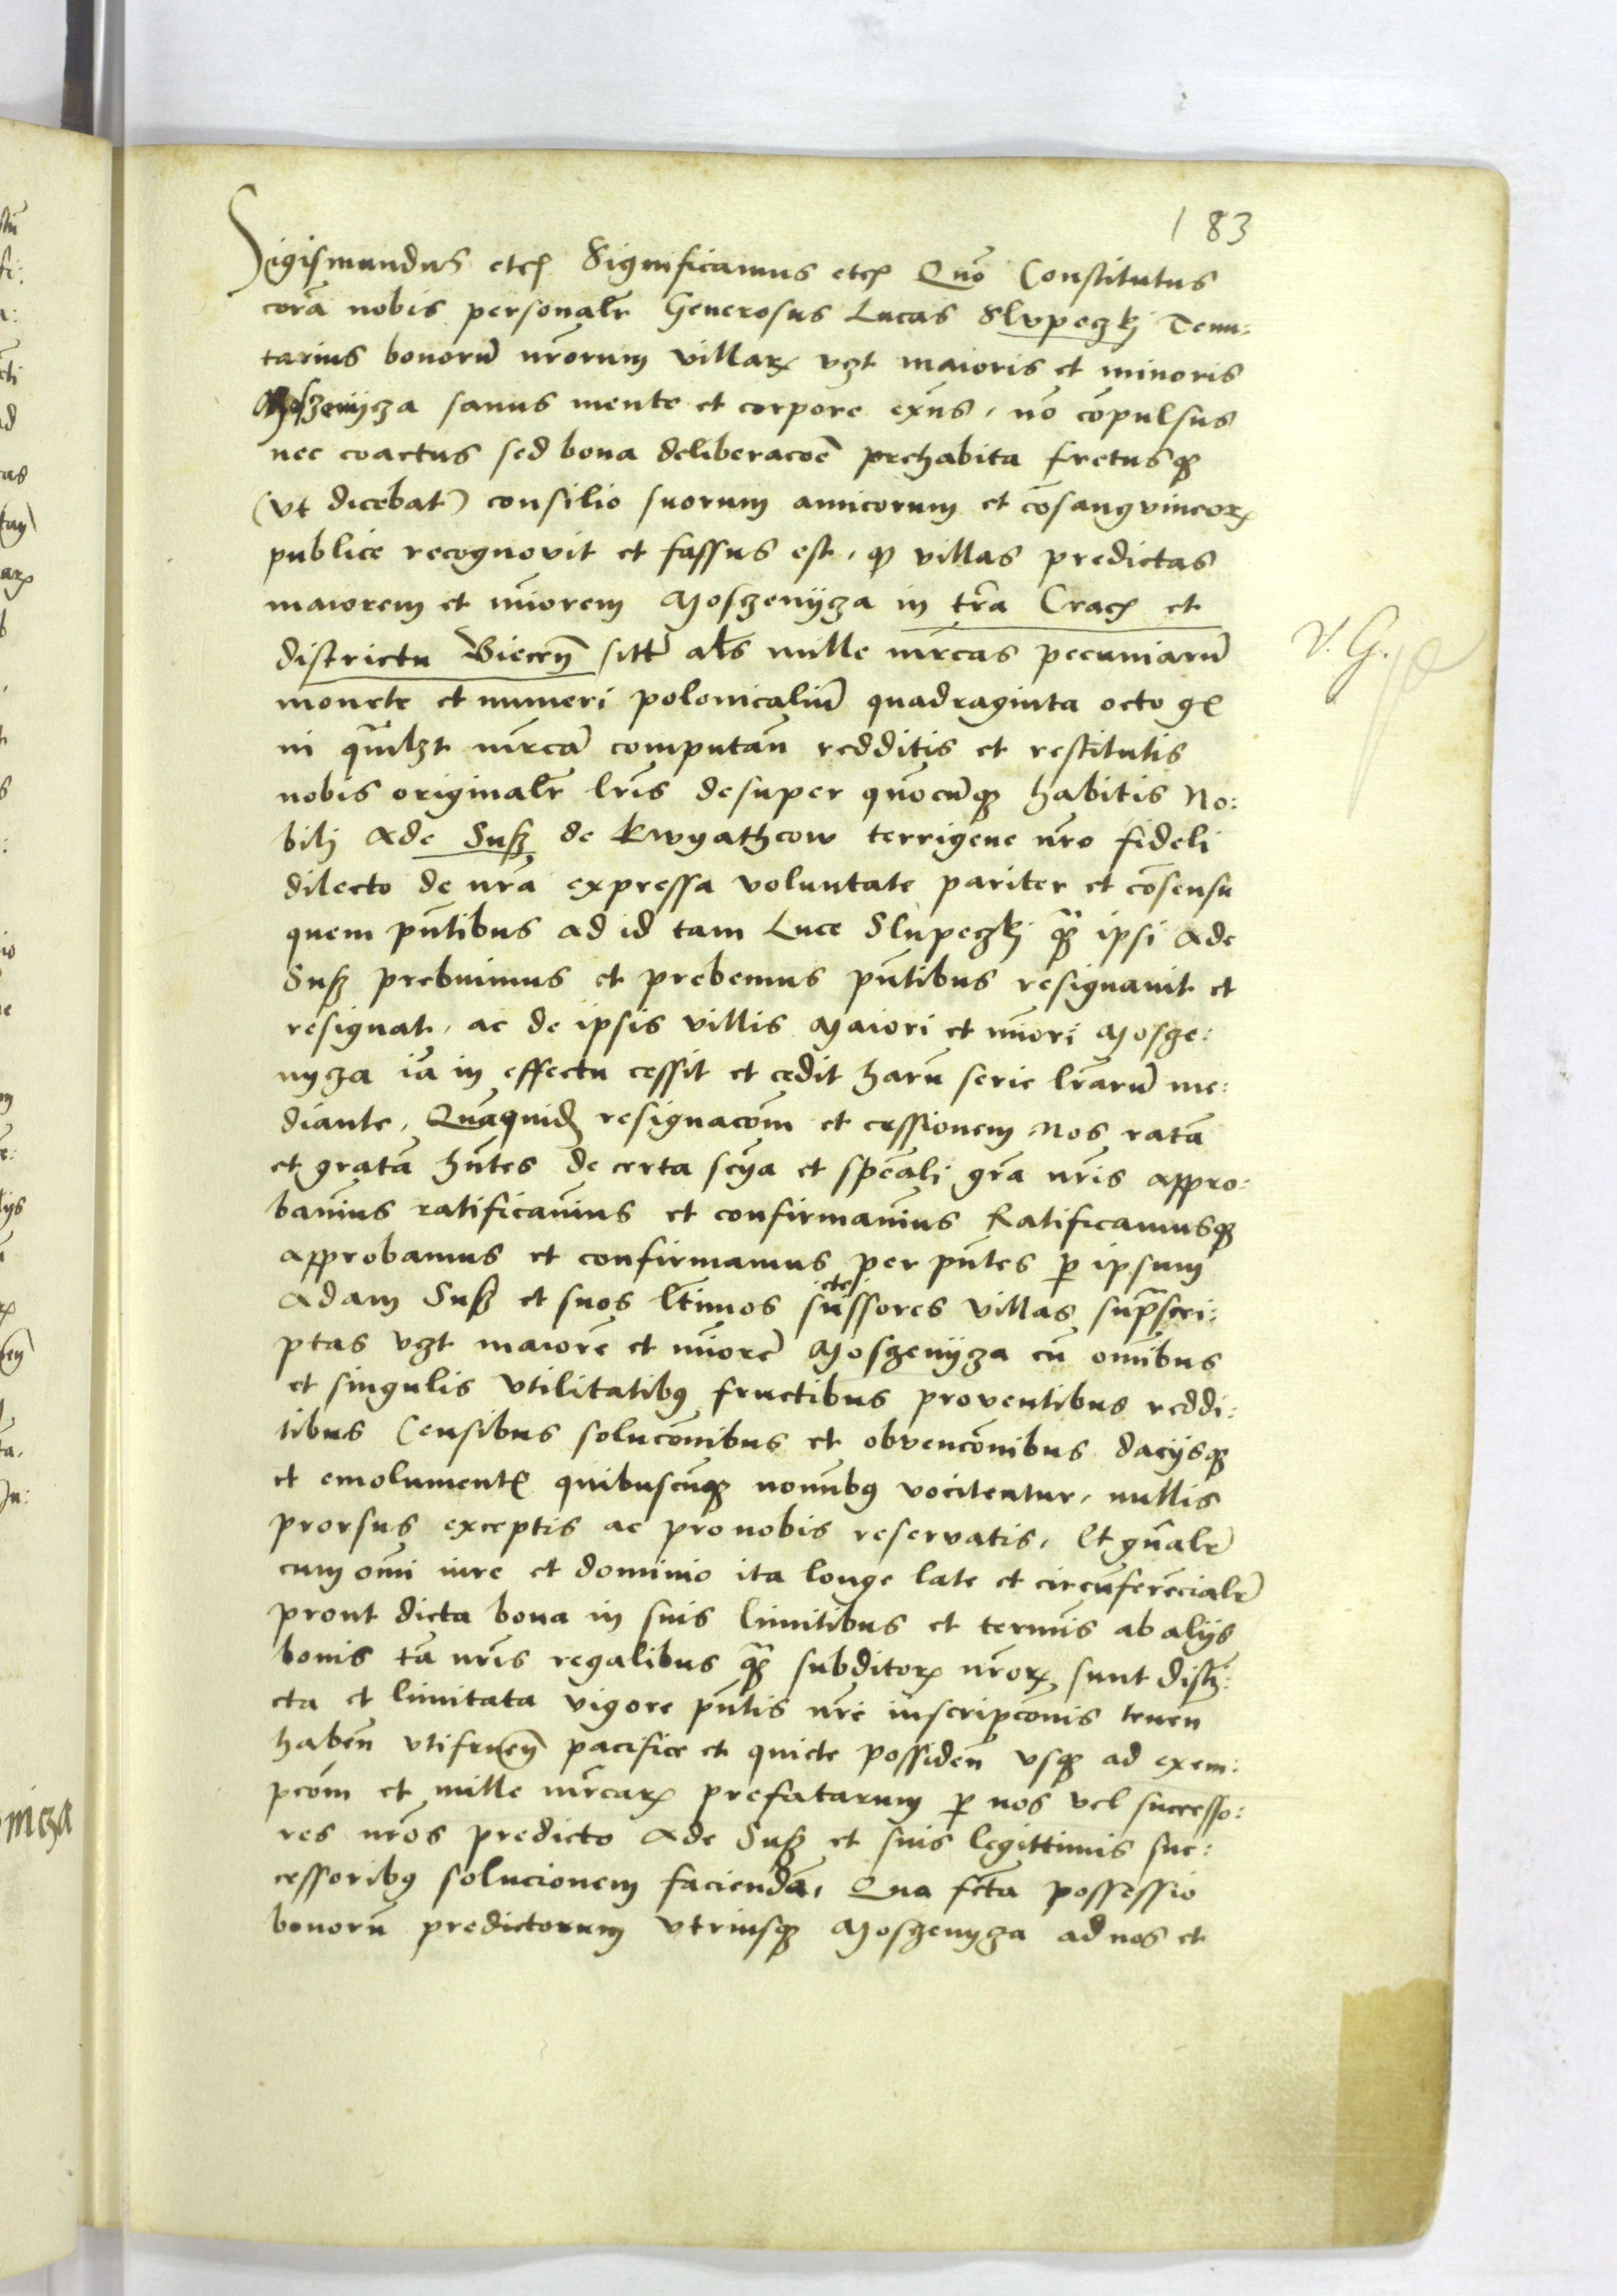 183
Sigismundus etc̄ Significamus etc̄ Quō Constitutus
corā nobis personalr̄ Generosus Lucas Slvpeczkj Tenu:
tarius bonorū nr̄orum villaꝝ vzt maioris et minoris
Moszenijcza sanus mente et corpore exn̄s, nō cōpulsus
nec coactus sed bona deliberacōe prehabita fretusqꝫ
(vt dicebat) consilio suorum amicorum et cōsangvineoꝝ
publice recognovit et fassus est, ꝙ villas predictas
maiorem et mīorem Moszenijcza in tr̄a Crac̄ et
districtu Biecen̄ sitt̄ als̄ mille mr̄cas pecuniarū
monete et numeri polonicaliū quadraginta octo gꝭ
in qualꝫt mr̄cā computan̄ redditis et restitutis
nobis originalr̄ lr̄is desuper quōcūqꝫ habitis No:
bilj Ade Susz de Kwyathcow terrigene nr̄o fideli
dilecto de nr̄a expressa voluntate pariter et cōsensu
quem pn̄tibus ad id tam Luce Slupeczkj qꝫ ipsi Ade
Susz prebuimus et prebemus pn̄tibus resignavit et
resignat, ac de ipsis villis Maiori et mīori Mosze:
nycza iā in effectu cessit et cedit harū serie lr̄arū me:
diante, Quāquidē resignacōm et cessionem Nos ratā
et gratā hn̄tes de certa scīa et spēali gr̄a nr̄is appro:
bavīus ratificavīus et confirmavīus Ratificamusqꝫ
approbamus et confirmamus per pn̄tes ꝑ ipsum
Adam Susz et suos ltīmos sucessores villas supͣscri:
ptas vzt maiorē et mīorē Moszenijcza cū om̄ibus
et singulis vtilitatibꝰ fructibus proventibus reddi:
tibus Censibus solucōnibus et obvencōnibus dacijsqꝫ
et emolumentꝭ quibuscūqꝫ nomībꝰ vocitentur, nullis
prorsus exceptis ac pro nobis reservatis, Et gn̄alr̄
cum om̄i iure et dominio ita longe late et circūferēcialr̄
prout dicta bona in suis limitibus et termīs ab alijs
bonis tā nr̄is regalibus qꝫ subditoꝝ nr̄oꝝ sunt distī:
cta et limitata vigore pn̄tis nr̄e inscripcōnis tenen̄
haben̄ vtifruen̄ pacifice et quiete possiden̄ vsqꝫ ad exem:
pcōm et mille mr̄caꝝ prefatarum ꝑ nos vel successo:
res nr̄os predicto Ade Susz et suis legittimis suc:
cessoribꝰ solucionem faciendā, Qua fcta possessio
bonorū predictorum vtriusqꝫ Moszenycza ad nos et
V. G.